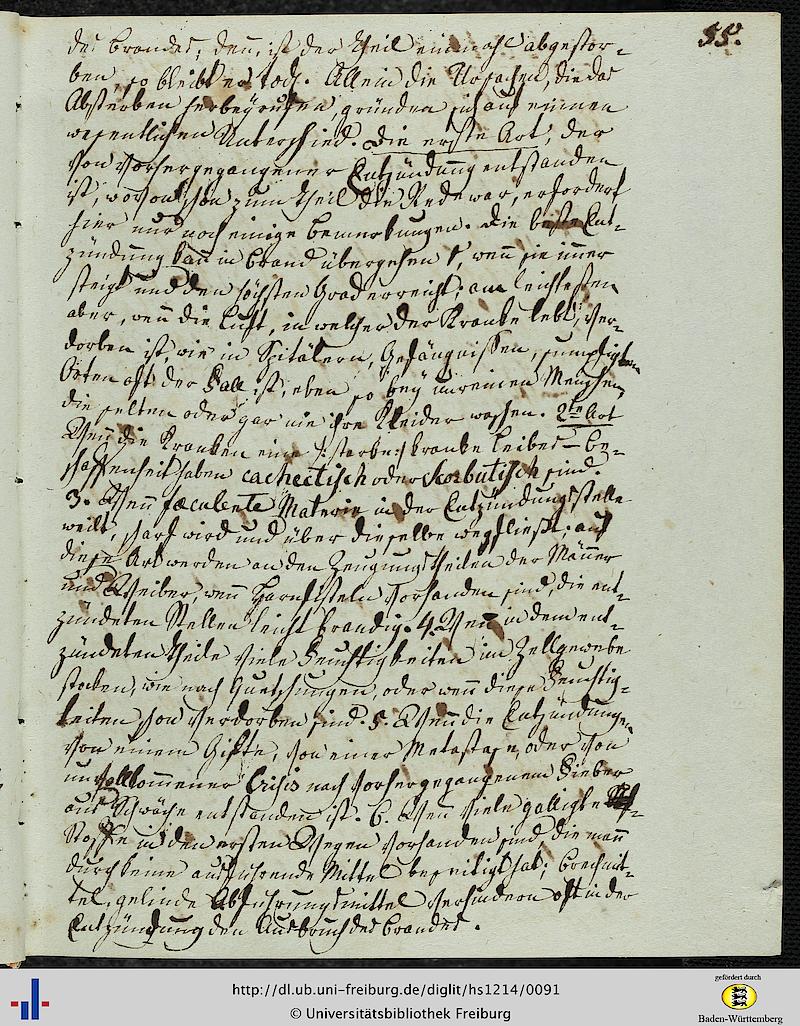 55.
des Brandes, denn, ist der Theil einmahl abgestor-
ben, so bleibt er todt. Allein die Ursachen, die das
Absterben herbeyrufen, gründen sich auf einen
wesentlichen Unterschied. Die erste Art, der
von vorhergegangener Entzündung entstanden
ist, wovon schon zum Theil die Rede war, erfordert
hier nur noch einige Bemerkungen. Die Ent-
zündung kann in Brand übergehen 1, wenn sie immer
steigt und den höchsten Grad erreicht; am leichtesten
aber, wenn die Luft, in welcher der Kranke lebt, ver-
dorben ist, wie in Spitälern, Gefängnissen, sumpfigten
Orten oft der Fall ist, eben so bey unreinen Menschen,
die selten oder gar nie ihre Kleider waschen. 2te Art
Wenn die Kranken eine kranke Leibes-Be-
schaffenheit haben cachectisch oder skorbutisch sind.
3. Wenn faeculente Materie in der Entzündungsstelle
weilt, scharf wird und über dieselbe wegfließt; auf
diese Art werden an den Zeugungstheilen der Männer
und Weiber, wenn Harnfisteln vorhanden sind, die ent-
zündeten Stellen leicht brandig. 4. Wenn in dem ent-
zündeten Theile viele Feuchtigkeiten im Zellgewebe
stocken, wie nach Quetschungen, oder wenn diese Feuchtig-
keiten schon verdorben sind. 5. Wenn die Entzündungen
von einem Gifte, von einer Metastase, oder von
unvollkommener Crisis nach vorhergegangenem Fieber
aus Schwäche entstanden ist. 6. Wenn viele galligte
Stoffe in den ersten Wegen vorhanden sind, die man
durch keine ausführende Mittel beseitigt hat; Brechmit-
tel, gelinde Abführungsmittel verhindern oft in der
Entzündung den Ausbruch des Brandes.
http://dl.ub.uni-freiburg.de/diglit/hs1214/0091
© Universitätsbibliothek Freiburg
gefördert durch
Baden-Württemberg